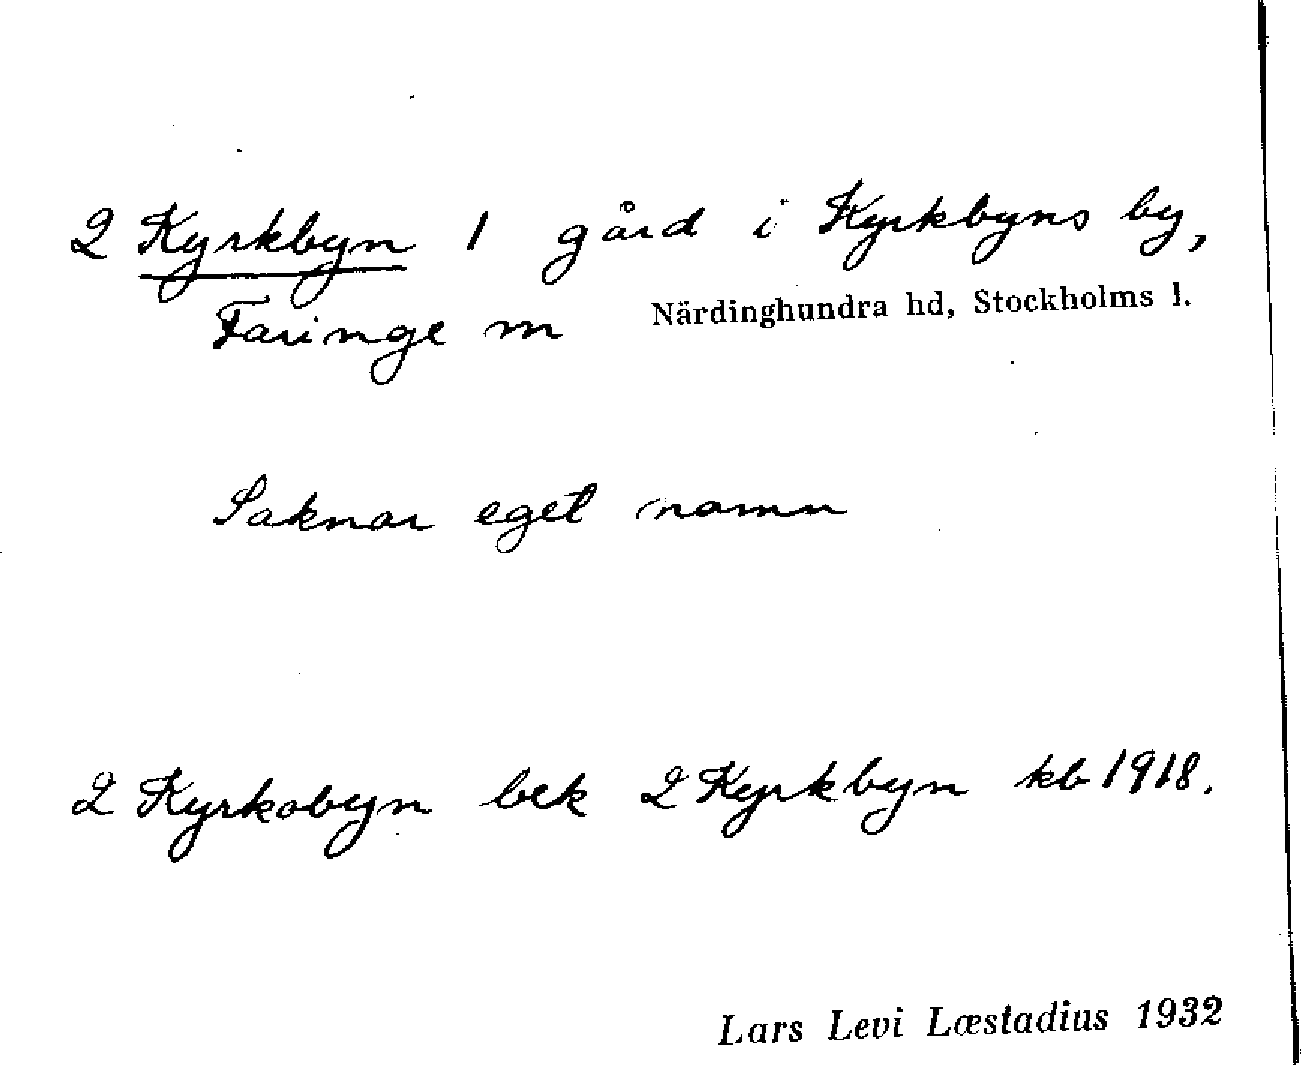 2 Kyrkbyn 1 gård i Kyrkbyns by,
Faringe m Närdinghundra hd, Stockholms l.
Saknar eget namn
2 Kyrkobyn bek 2 Kyrkbyn kb 1918.
Lars Levi Læstadius 1932